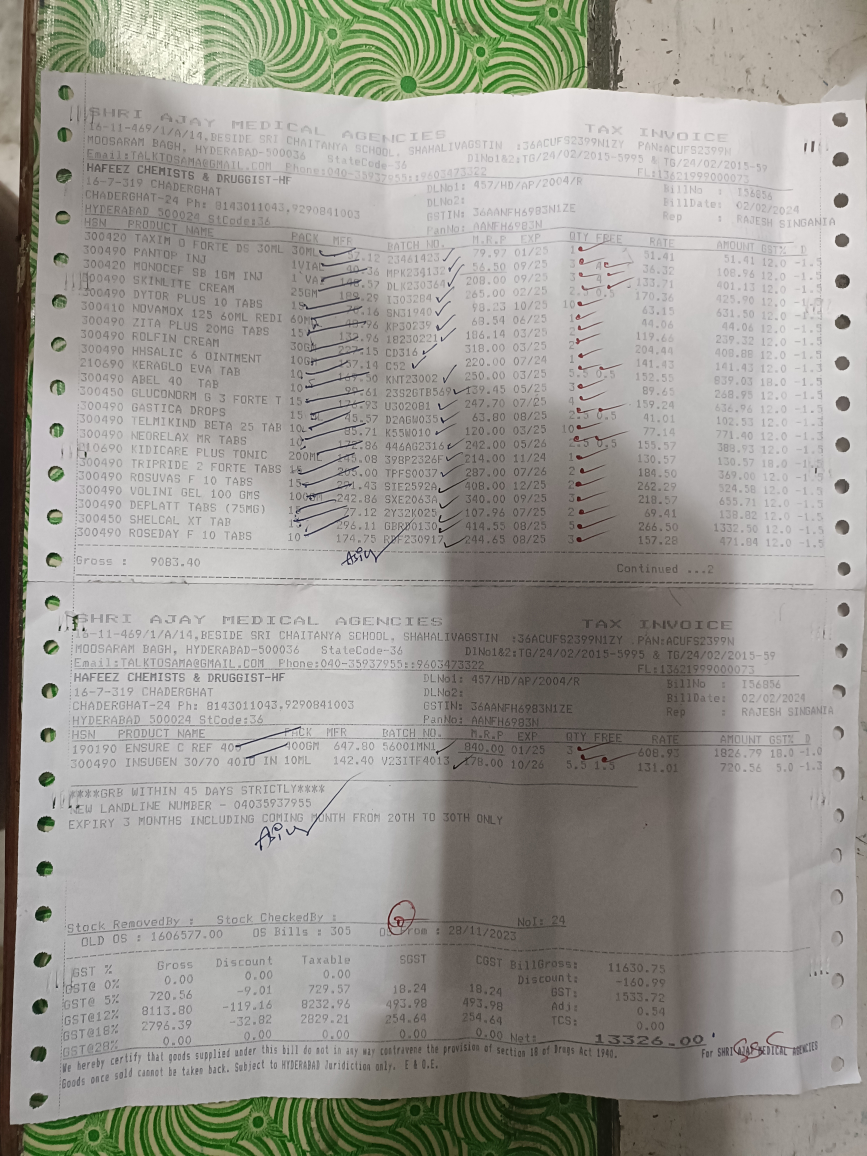 SHRI AJAY MEDICAL AGENCIES TAX INVOICE
16-11-469/1/A/14,BESIDE SRI CHAITANYA SCHOOL, SHAHALIVAGSTIN :36ACUFS2399N1ZY PAN:ACUFS2399N
MOOSARAM BAGH, HYDERABAD-500036 StateCode-36 DlNo1&2:TG/24/02/2015-5995 & TG/24/02/2015-59
Email:TALKTOSAMA@GMAIL.COM Phone:040-35937955::9603473322 FL:13621999000073
HAFEEZ CHEMISTS & DRUGGIST-HF DLNo1: 457/HD/AP/2004/R BillNo : I56856
16-7-319 CHADERGHAT DLNo2: BillDate: 02/02/2024
CHADERGHAT-24 Ph: 8143011043,9290841003 GSTIN: 36AANFH6983N1ZE Rep : RAJESH SINGANIA
HYDERABAD 500024 StCode:36 PanNo: AANFH6983N
HSN PRODUCT NAME PACK MFR BATCH NO. M.R.P EXP QTY FREE RATE AMOUNT GST% D
300420 TAXIM O FORTE DS 30ML 30ML 23461423 79.97 01/25 1 51.41 51.41 12.0 -1.5
300490 PANTOP INJ 1VIAL MPK234132 56.50 09/25 36.32 108.96 12.0 -1.5
300420 MONOCEF SB 1GM INJ DLK230364 208.00 09/25 133.71 401.13 12.0
300490 SKINLITE CREAM 25GM 189.29 I303284 265.00 02/25 2.5 0.5 170.36 425.90 12.0
300490 DYTOR PLUS 10 TABS 15 SN31940 98.23 10/25 10 63.15 631.50 12.0
300410 NOVAMOX 125 60ML REDI 60ML KP30239 68.54 06/25 1 44.06 44.06 12.0 -1.5
300490 ZITA PLUS 20MG TABS 15 132.96 18230221 186.14 03/25 2 119.66 239.32 12.0 -1.5
300490 ROLFIN CREAM 30GM 227.15 CD316 318.00 03/25 2 204.44 408.88 12.0 -1.5
300490 HHSALIC 6 OINTMENT 10GM 157.14 C52 220.00 07/24 1 141.43 141.43 12.0 -1.5
210690 KERAGLO EVA TAB 10 169.50 KNT23002 250.00 03/25 5.5 0.5 152.55 839.03 18.0
300490 ABEL 40 TAB 10 99.61 23S2GTB569 139.45 05/25 3 89.65 268.95 12.0 -1.5
300450 GLUCONORM G 3 FORTE T 15 176.93 U302081 247.70 07/25 4 159.24 636.96 12.0
300490 GASTICA DROPS 45.57 D2AGW035 63.80 08/25 2.5 0.5 41.01 102.53 12.0
300490 TELMIKIND BETA 25 TAB 10 85.71 K55W010 120.00 03/25 10 77.14 771.40 12.0
300490 NEORELAX MR TABS 10 172.86 446AG2316 242.00 05/26 2.5 0.5 155.57 388.93 12.0
210690 KIDICARE PLUS TONIC 200ML 145.08 39BP2326F 214.00 11/24 1 130.57 130.57 18.0
300490 TRIPRIDE 2 FORTE TABS 15 205.00 TPFS0037 287.00 07/26 2 184.50 369.00 12.0 -1.5
300490 ROSUVAS F 10 TABS 15 291.43 SIE2592A 408.00 12/25 2 262.29 524.58 12.0 -1.5
300490 VOLINI GEL 100 GMS 100GM 242.86 SXE2063A 340.00 09/25 3 218.57 655.71 12.0 -1.5
300490 DEPLATT TABS (75MG) 77.12 2Y32K025 107.96 07/25 2 69.41 138.82 12.0 -1.5
300450 SHELCAL XT TAB 296.11 GBRD0130 414.55 08/25 5 266.50 1332.50 12.0 -1.5
300490 ROSEDAY F 10 TABS 10 174.75 RBF230917 244.65 08/25 3 157.28 471.84 12.0 -1.5
Gross : 9083.40 Continued ...2
SHRI AJAY MEDICAL AGENCIES TAX INVOICE
16-11-469/1/A/14,BESIDE SRI CHAITANYA SCHOOL, SHAHALIVAGSTIN :36ACUFS2399N1ZY .PAN:ACUFS2399N
MOOSARAM BAGH, HYDERABAD-500036 StateCode-36 DlNo1&2:TG/24/02/2015-5995 & TG/24/02/2015-59
Email:TALKTOSAMA@GMAIL.COM Phone:040-35937955::9603473322 FL:13621999000073
HAFEEZ CHEMISTS & DRUGGIST-HF DLNo1: 457/HD/AP/2004/R BillNo : I56856
16-7-319 CHADERGHAT DLNo2: BillDate: 02/02/2024
CHADERGHAT-24 Ph: 8143011043,9290841003 GSTIN: 36AANFH6983N1ZE Rep : RAJESH SINGANIA
HYDERABAD 500024 StCode:36 PanNo: AANFH6983N
HSN PRODUCT NAME PACK MFR BATCH NO. M.R.P EXP QTY FREE RATE AMOUNT GST% D
190190 ENSURE C REF 400 400GM 647.80 56001MN1 840.00 01/25 3 608.93 1826.79 18.0 -1.0
300490 INSUGEN 30/70 40IU IN 10ML 142.40 V231TF4013 178.00 10/26 5.5 1.5 131.01 720.56 5.0 -1.3
****GRB WITHIN 45 DAYS STRICTLY****
NEW LANDLINE NUMBER - 04035937955
EXPIRY 3 MONTHS INCLUDING COMING MONTH FROM 20TH TO 30TH ONLY
Stock RemovedBy : Stock CheckedBy : NoI: 24
OLD OS : 1606577.00 OS Bills : 305 OS From : 28/11/2023
GST % Gross Discount Taxable SGST CGST BillGross: 11630.75
GST@ 0% 0.00 0.00 0.00 Discount: -160.99
GST@ 5% 720.56 -9.01 729.57 18.24 18.24 GST: 1533.72
GST@12% 8113.80 -119.16 8232.96 493.98 493.98 Adj: 0.54
GST@18% 2796.39 -32.82 2829.21 254.64 254.64 TCS: 0.00
GST@28% 0.00 0.00 0.00 0.00 0.00 Net: 13326.00
We hereby certify that goods supplied under this bill do not in any may contravene the provision of section 18 of Drugs Act 1940. For SHRI AJAY MEDICAL AGENCIES
Goods once sold cannot be taken back. Subject to HYDERABAD Juridiction only. E & O.E.